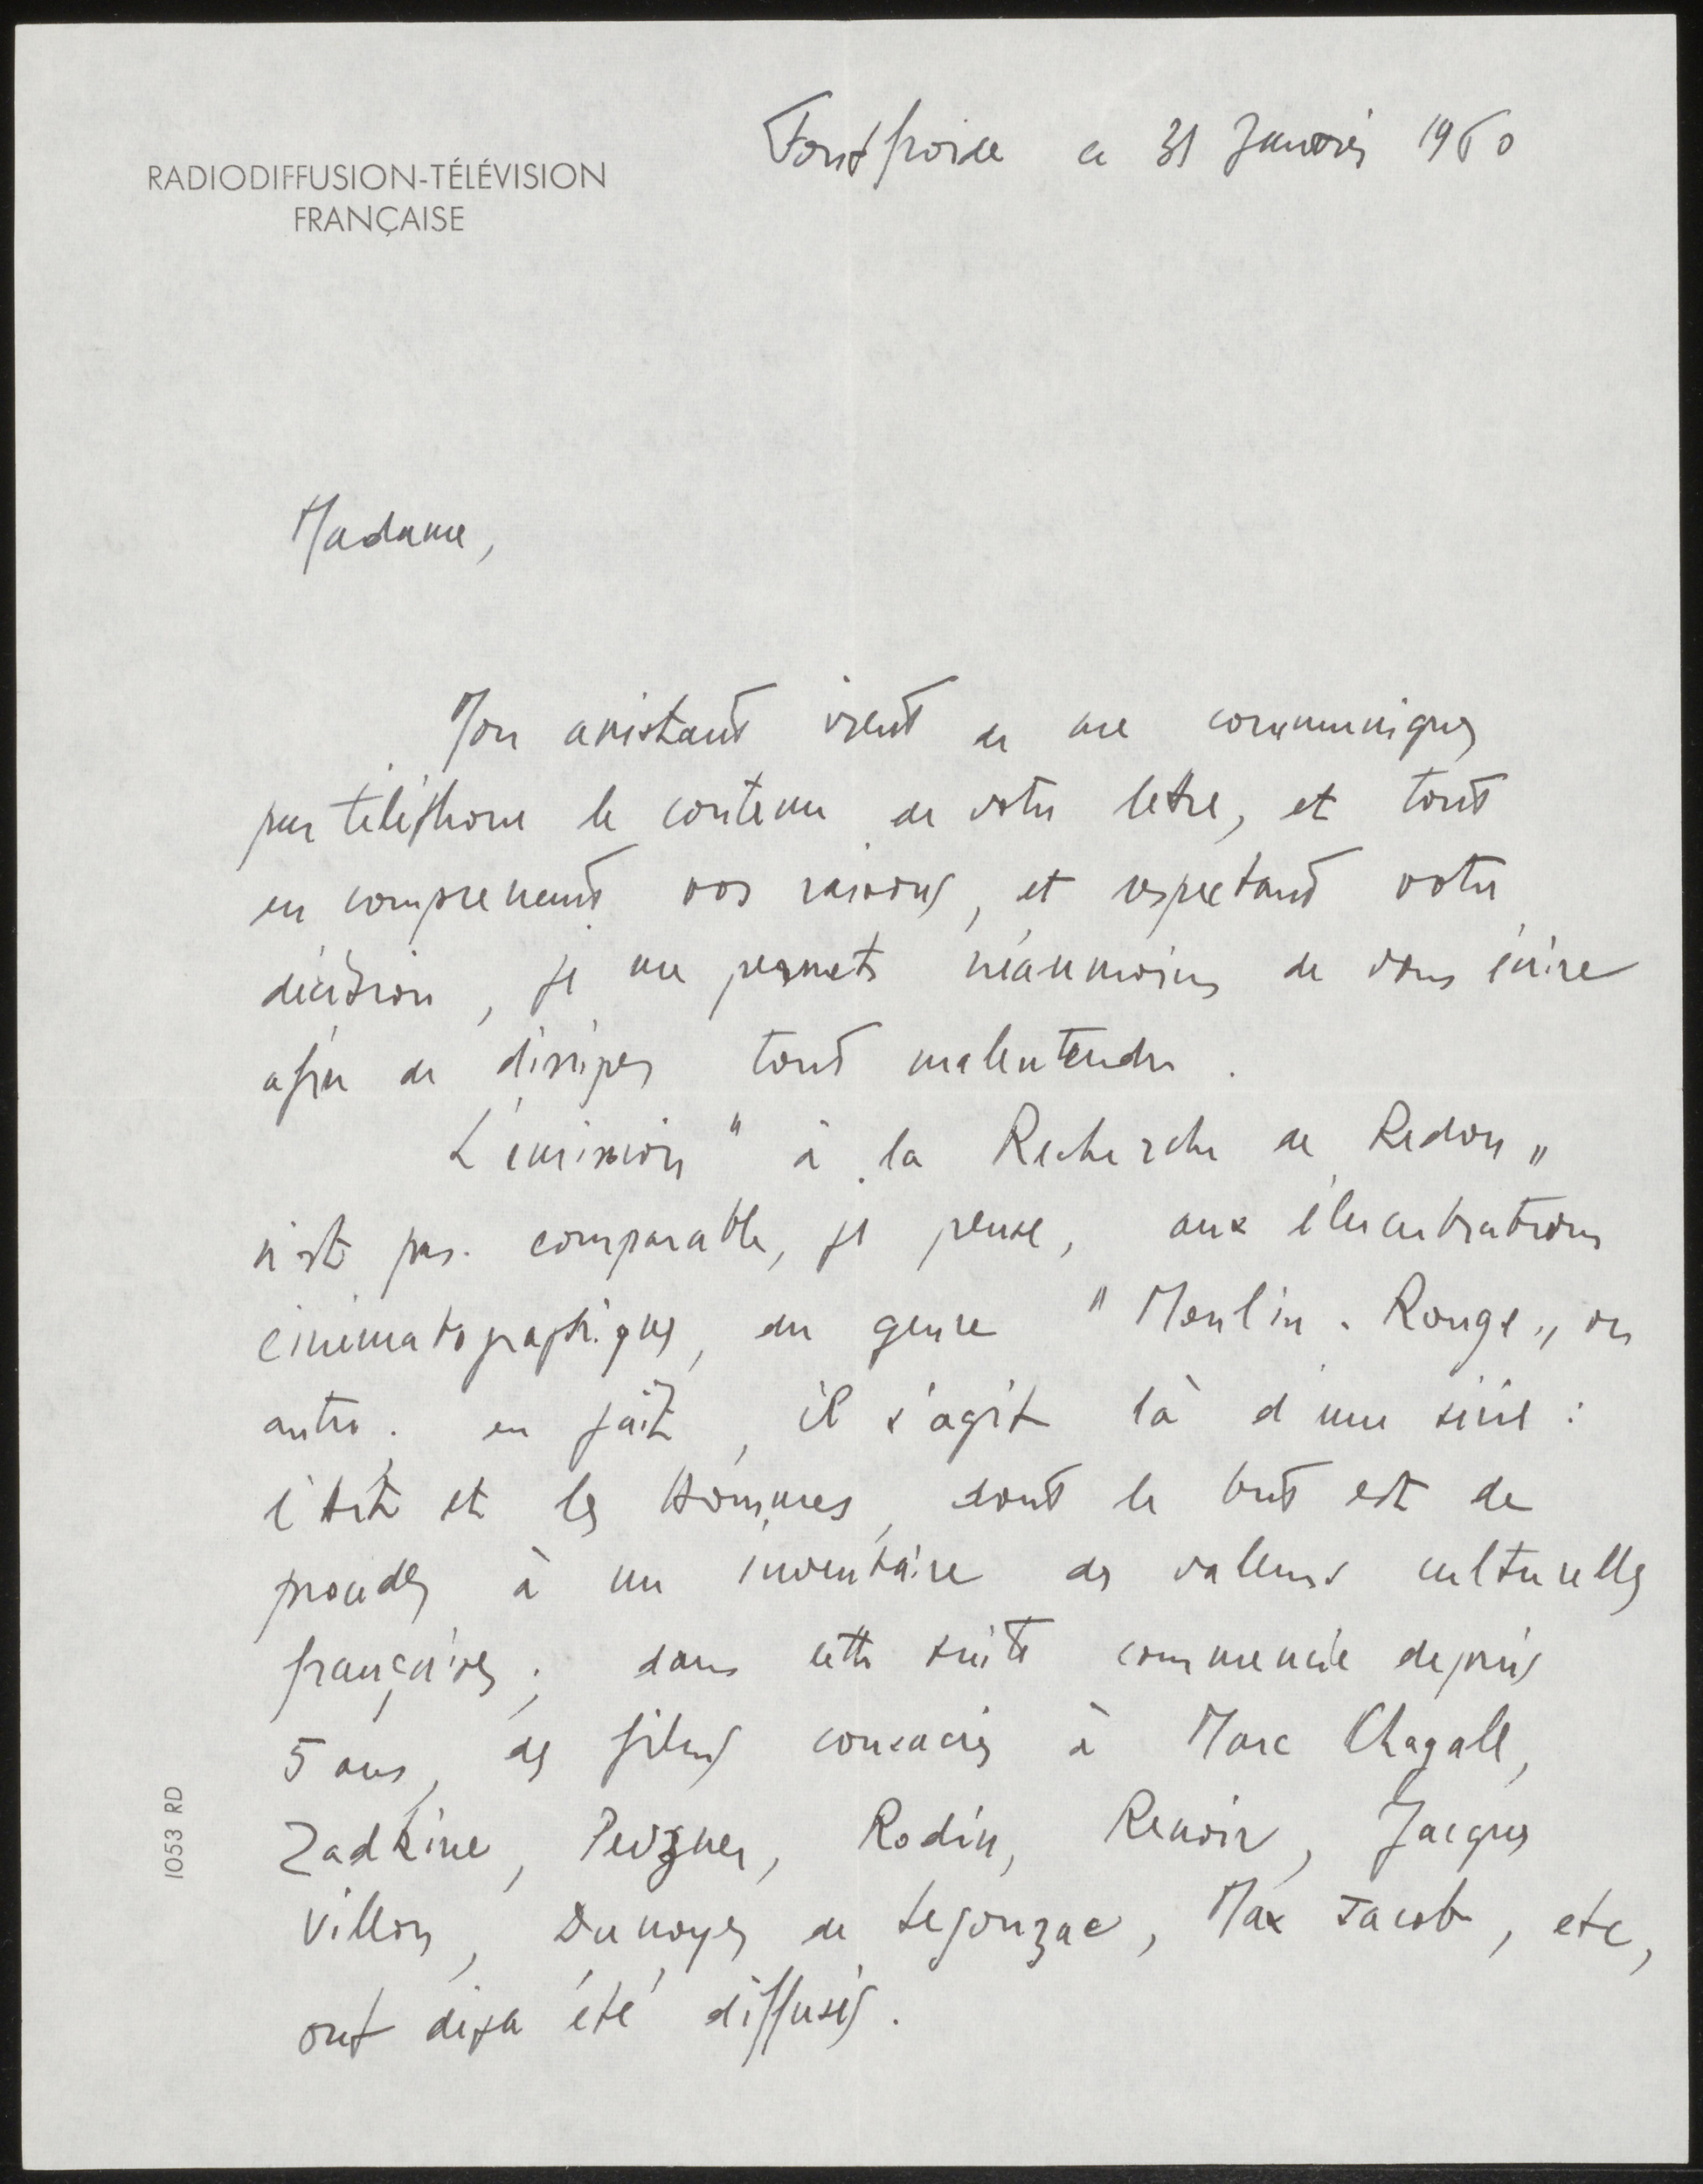 Fontfroide ce 31 Janvier 1960
RADIODIFFUSION-TÉLÉVISION
FRANÇAISE
Madame,
Mon assistant vient de me communiquer
par téléphone le contenu de votre lettre, et tout
en comprenant vos raisons, et respectant votre
décision, je me permets néanmoins de vous écrire
afin de dissiper tout malentendu.
L'émission "à la Recherche de Redon"
n'est pas comparable, je pense, aux élucubrations
cinématographiques, du genre "Moulin-Rouge" ou
autre. en fait, il s'agit là d'une série :
l'Art et les Hommes, dont le but est de
procéder à un inventaire des valeurs culturelles
françaises ; dans cette suite commencée depuis
5 ans, des films consacrés à Marc Chagall,
Zadkine, Pevzner, Rodin, Renoir, Jacques
Villon, Dunoyer de Segonzac, Max Jacob, etc,
ont déjà été diffusés.
1053 RD